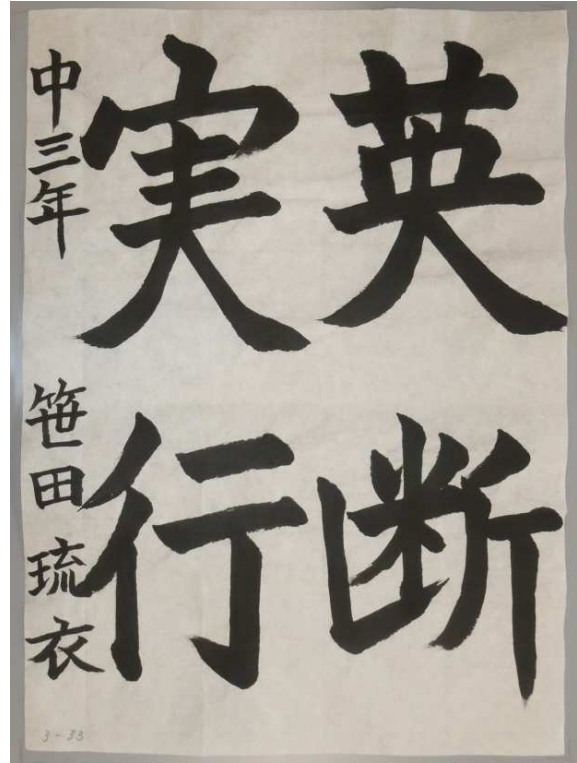 英断
実行
中三年 笹田琉衣
3-33